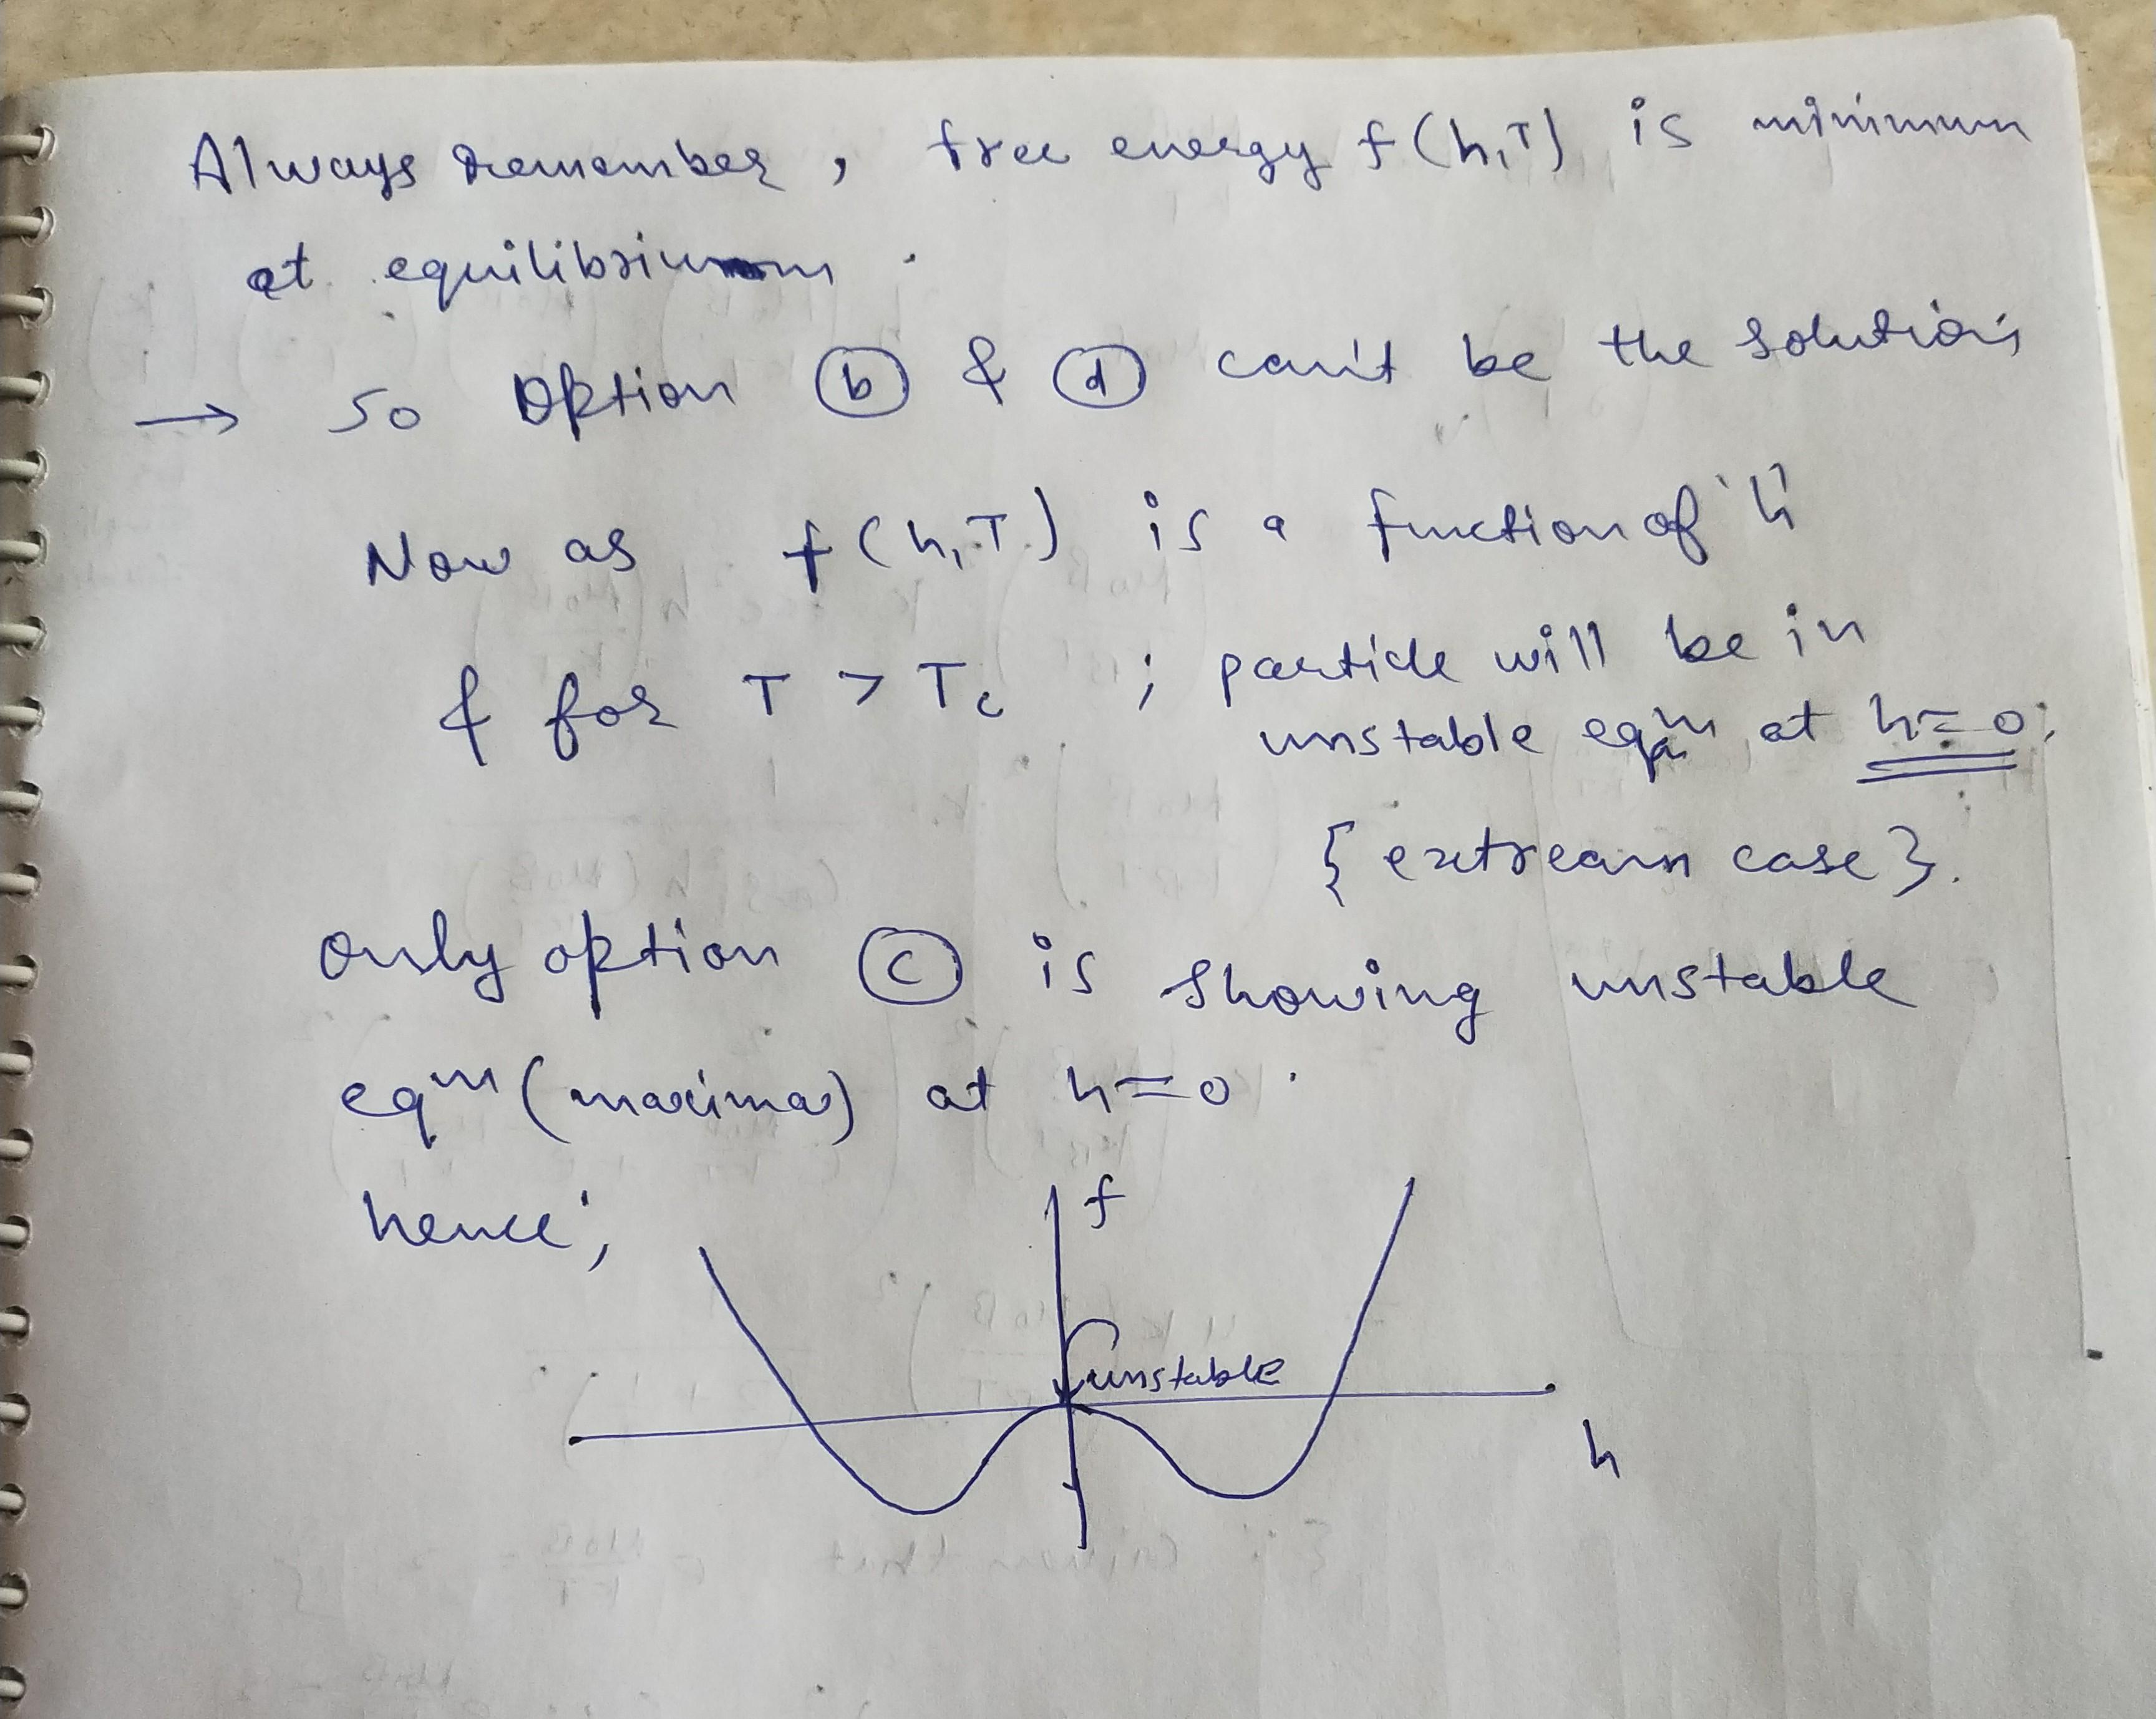 Always remember, free energy f(h,T) is minimum
at equilibrium.
→ so option (b) & (d) can't be the solution
Now as f(h,T) is a function of 'h'
& for T > Tc ; particle will be in
unstable eqm at h=0;
{extream case}.
Only option (c) is showing unstable
eqm (maxima) at h=0.
hence;
f
unstable
h